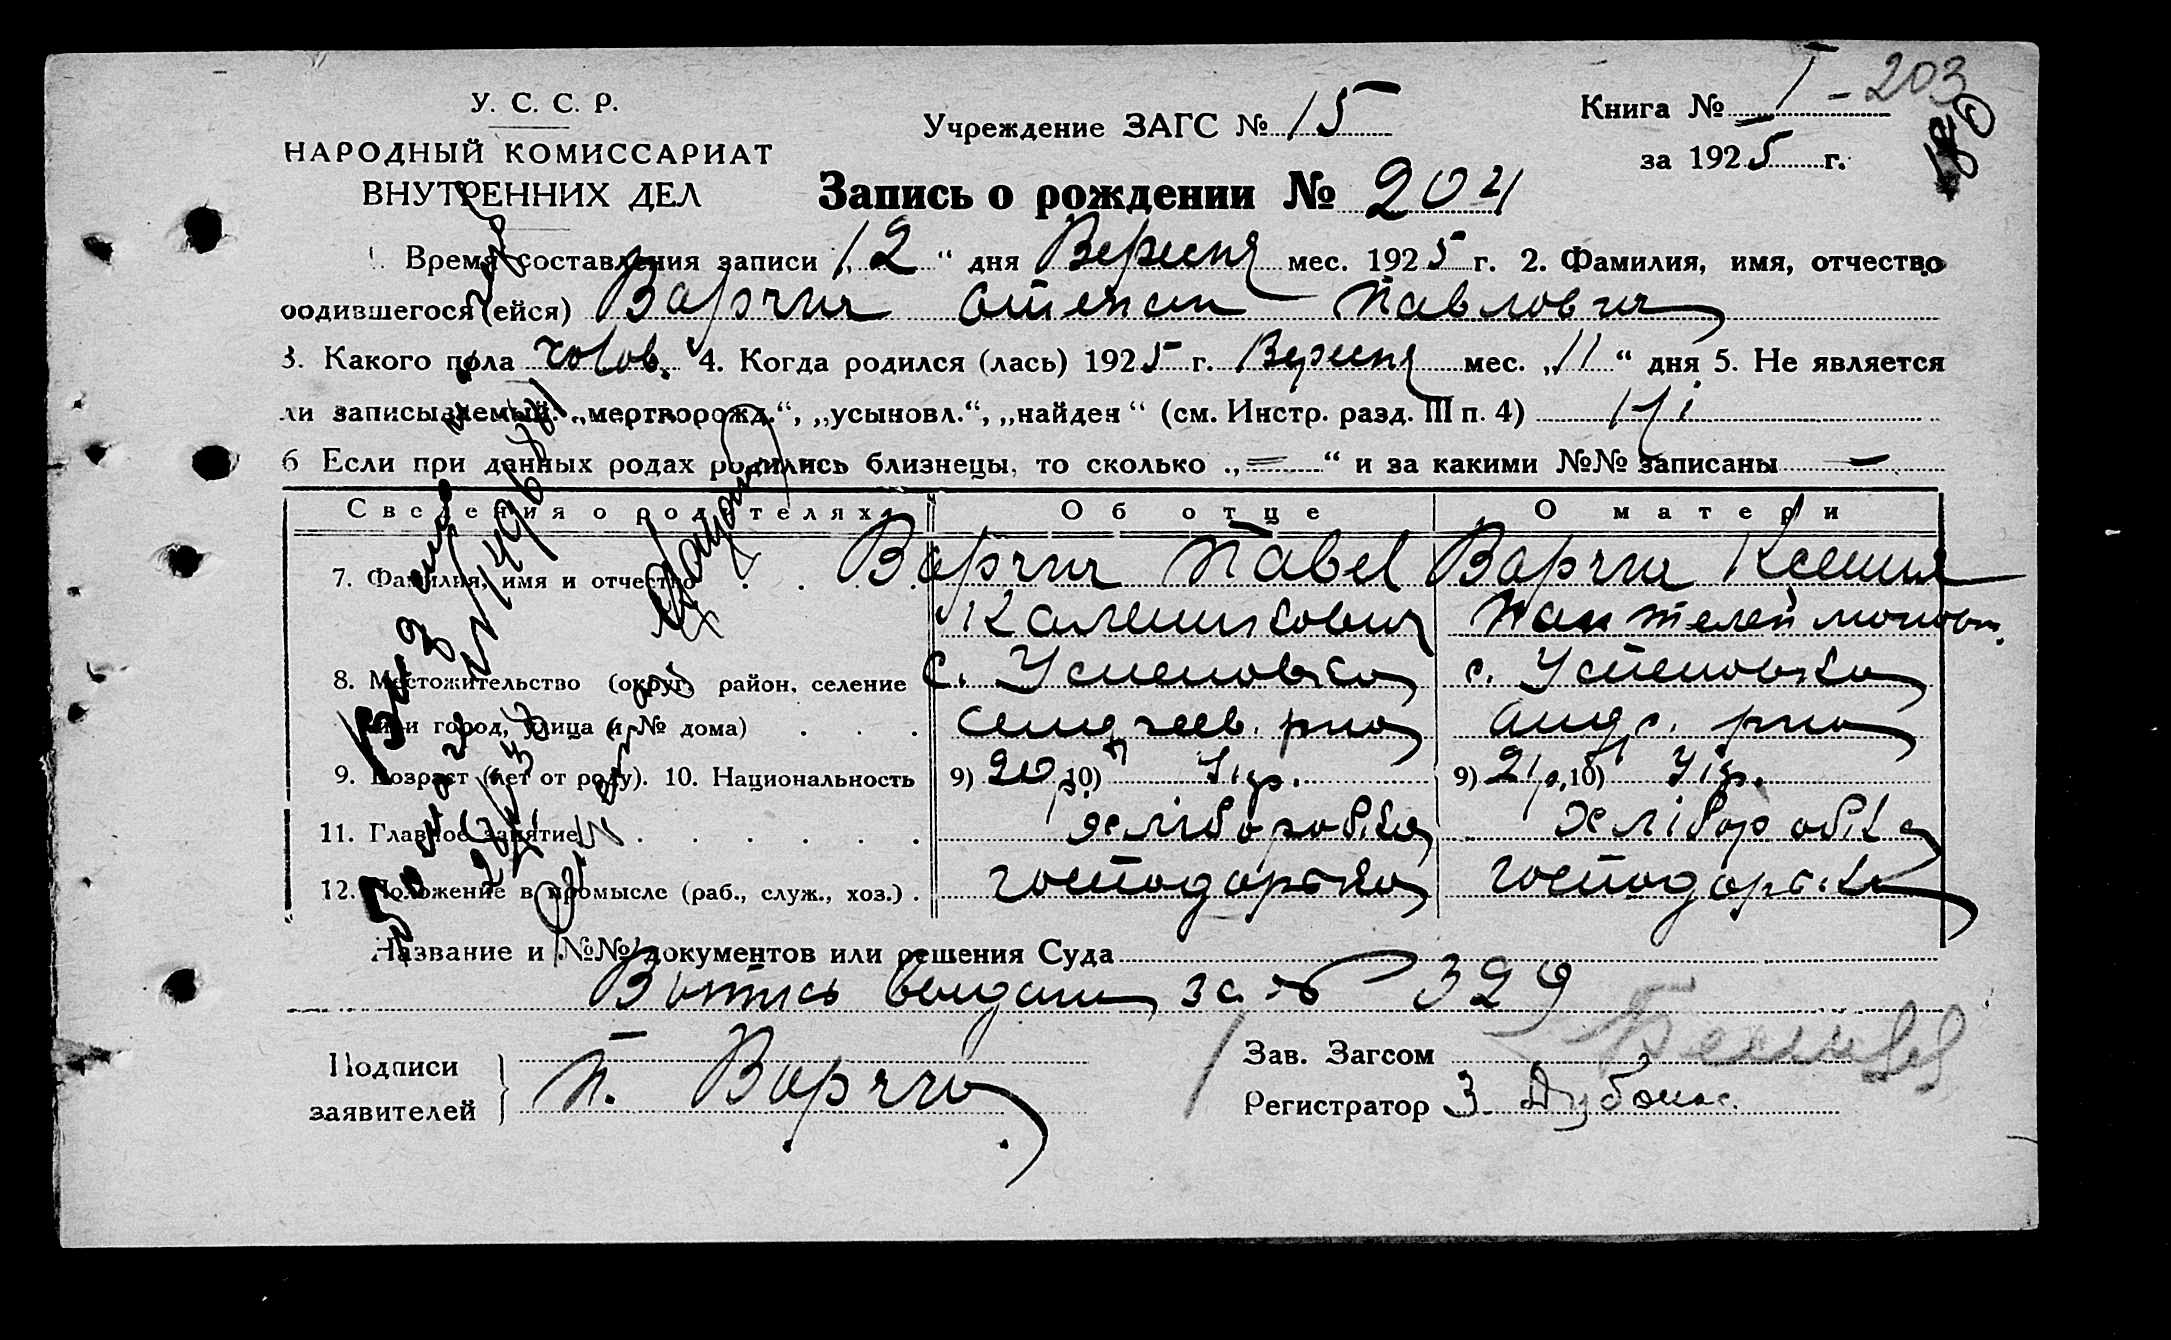 У. С. С. Р.
НАРОДНЫЙ КОМИССАРИАТ
ВНУТРЕННИХ ДЕЛ
Учреждение ЗАГС № 15
Книга № I - 203
за 1925 г.
Запись о рождении № 204
1. Время составления записи „12“ дня Вересня мес. 1925 г. 2. Фамилия, имя, отчество
родившегося (ейся) Варчич Степан Павлович
3. Какого пола чолов. 4. Когда родился (лась) 1925 г. Вересня мес. „11“ дня 5. Не является
ли записываемый: „мертворожд.“, „усыновл.“, „найден“ (см. Инстр. разд. III п. 4) Ні
6 Если при данных родах родились близнецы, то сколько „=“ и за какими №№ записаны —
Сведения о родителях Об отце О матери
7. Фамилия, имя и отчество . . . . Варчич Павел Варчич Ксения
Каленикович Пантелеймонов.
8. Местожительство (округ, район, селение с. Успеновка с. Успеновка
или город, улица и № дома) . . .
9. Возраст (лет от роду). 10. Национальность 9) 20 р. 10) Укр. 9) 21 р. 10) Укр.
11. Главное занятие . . . . . . хліборобка хліборобка
12. Положение в промысле (раб., служ., хоз.) . господарька господарька
Название и №№ документов или решения Суда
за № 329
Подписи
заявителей
П. Варчич
Зав. Загсом
Регистратор З